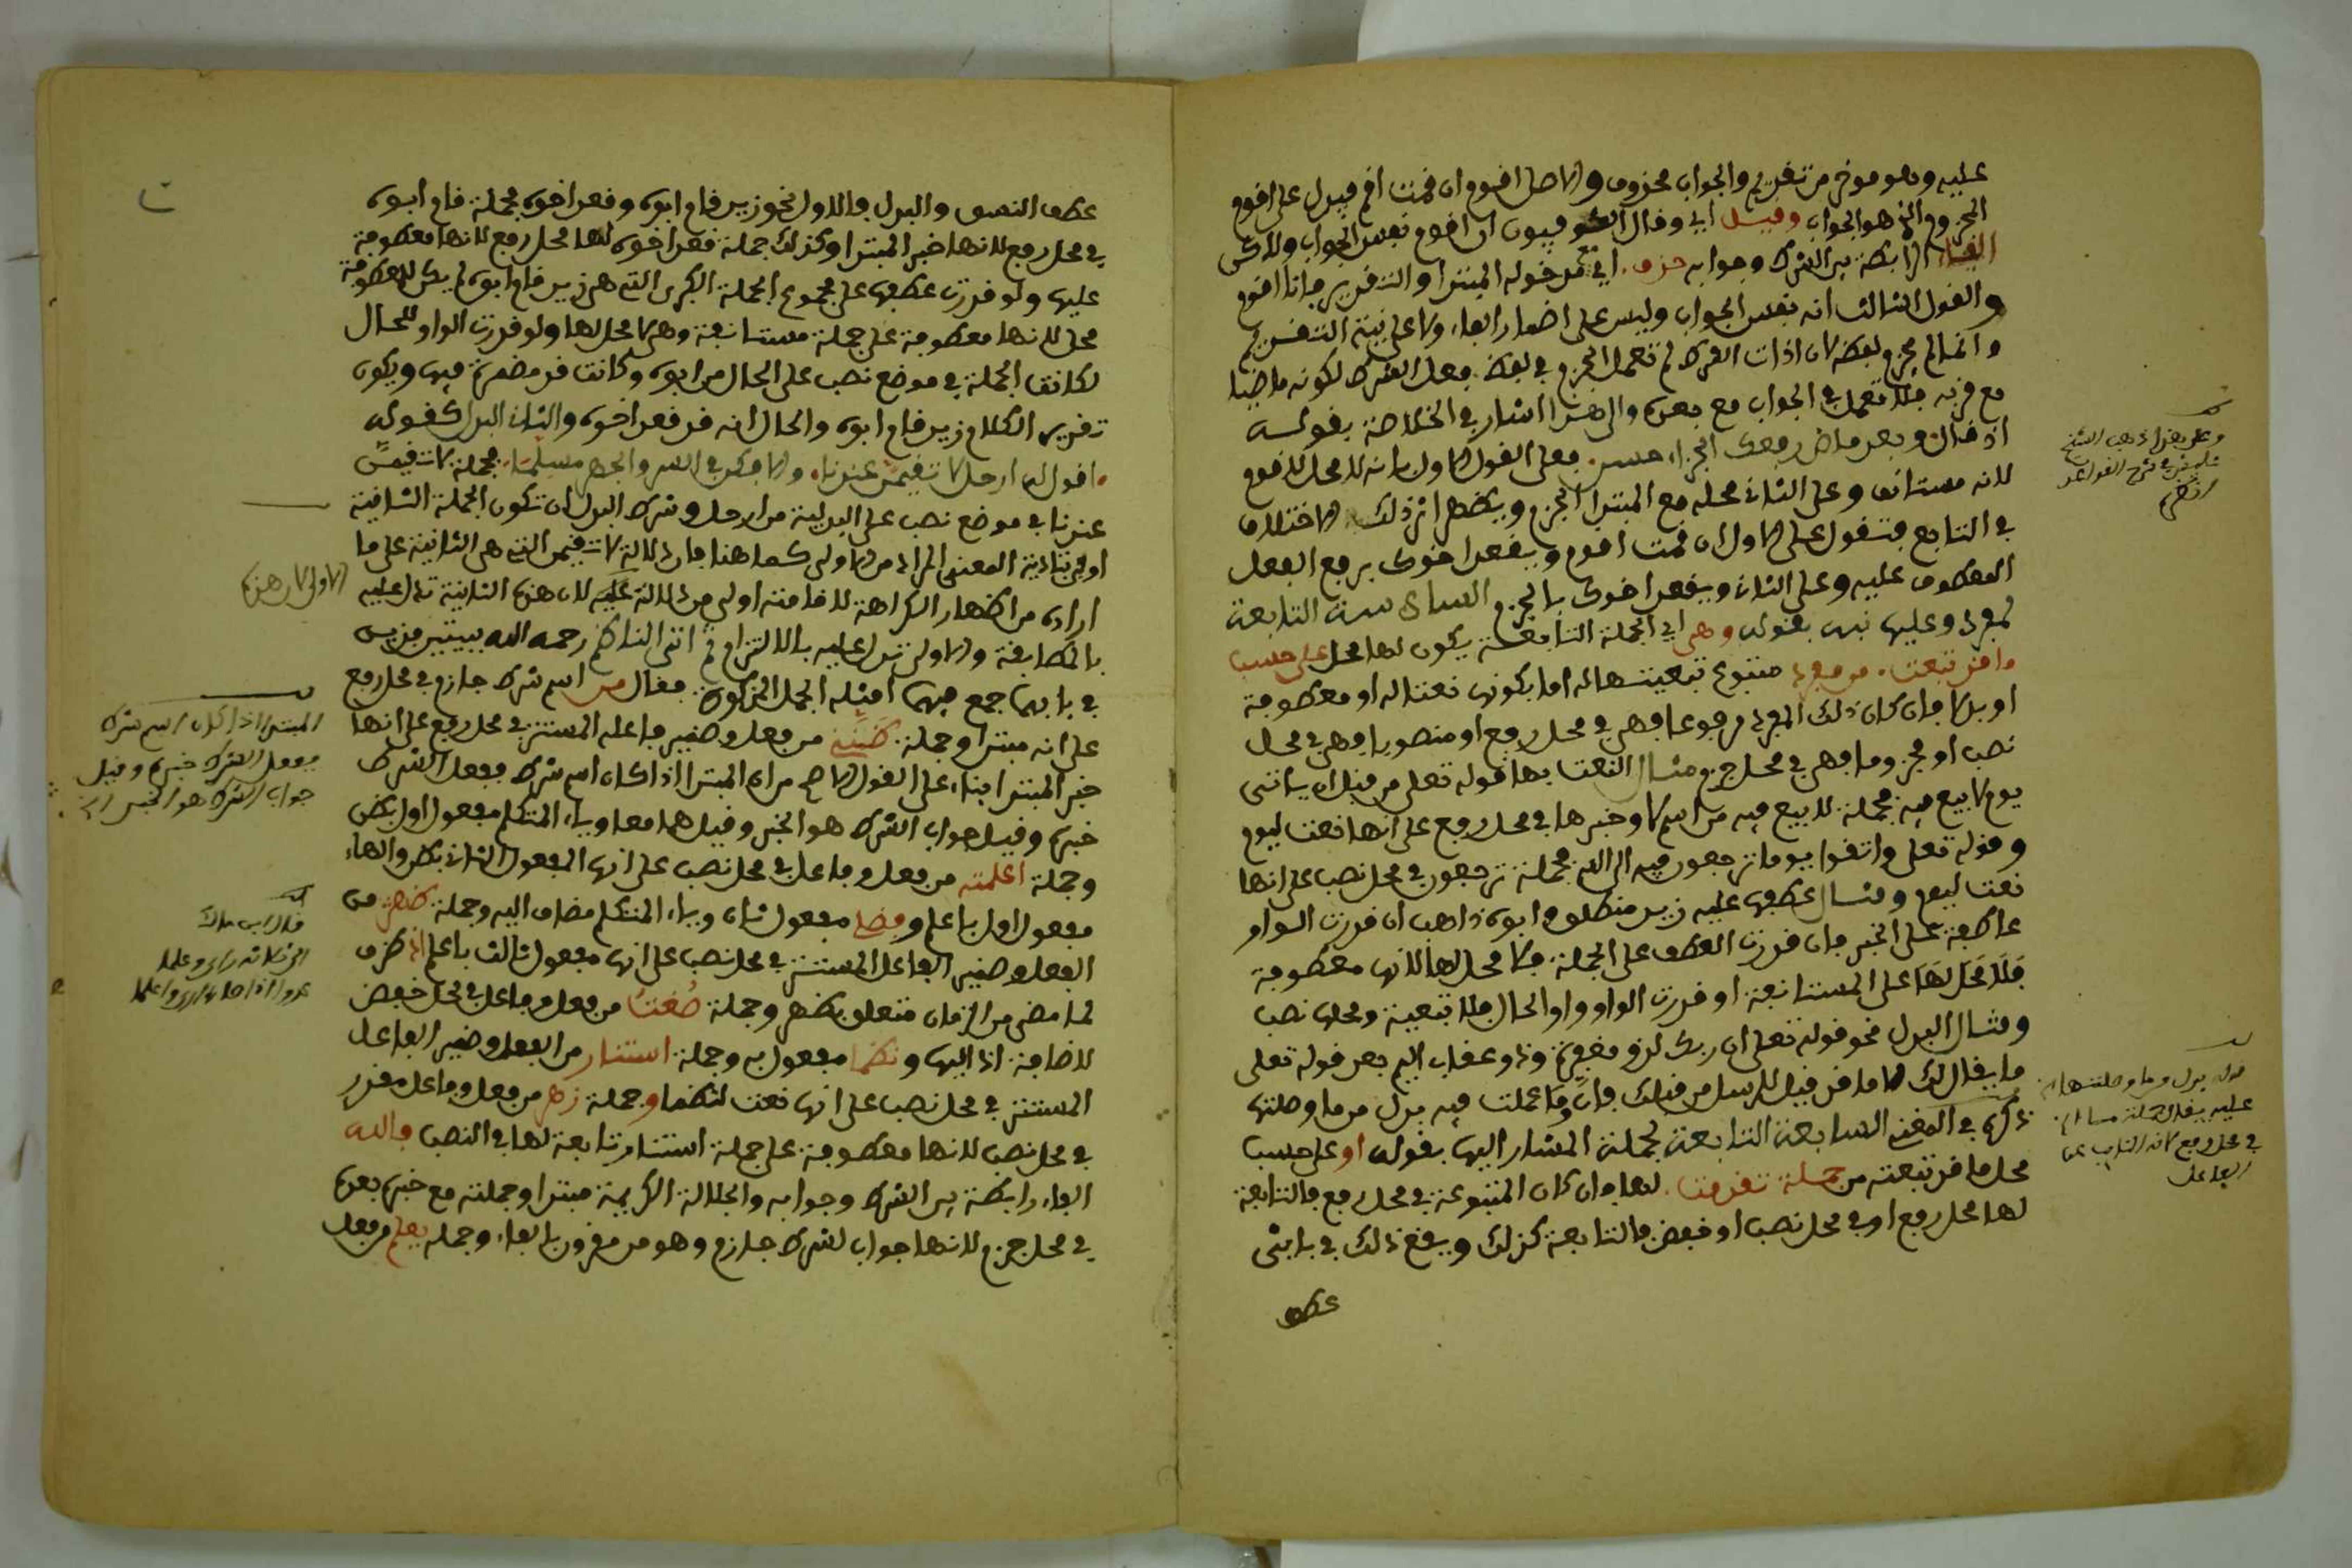 عليه وهو موخر من تقديم والجواب محذوف والاصل اقوم ان قمت اقم فيدل على اقوم
المجزوم الذي هو الجواب وقيل اي وقال الكوفيون ان اقوم نفس الجواب ولاكن
الفاء الرابطة بين الشرط وجوابه حذف اي مدخوله المبتدا والتقدير فانا اقوم
والقول الثالث انه نفس الجواب وليس على اضمار الفاء ولا على نية التقديم
وانما لم يجزم لفظه لان ادات الشرط لم تعمل الجزم في لفظ فعل الشرط لكونه ماضيا
مع قربه فلا تعمل في الجواب مع بعده والى هذا اشار في الخلاصة بقوله
اذ قال وبعد ماض رفعك الجزاء حسن فعلى القول الاول بانه لا محل لاقوم
لانه مستانف وعلى الثاني محله مع المبتدا الجزم ويظهر اثر ذلك الاختلاف
في التابع فتقول على الاول ان قمت اقوم ويقعد اخوك برفع الفعل
المعطوف عليه وعلى الثاني ويقعد اخوك بالجزم السادسة التابعة
لمفرد وعليها نبه بقوله وهي اي الجملة التابعة يكون لها محل على حسب
ما قد تبعت من مفرد متبوع تبعيتها له اما بكونها نعتا له او معطوفة
او بدلا فان كان ذلك المفرد مرفوعا فهي في محل رفع او منصوبا فهي في محل
نصب او مجزوما فهي في محل جزم مثال النعت بها قوله تعلى من قبل ان ياتي
يوم لا بيع فيه فجملة لا بيع فيه من اسم لا وخبرها في محل رفع على انها نعت ليوم
وقوله تعلى واتقوا يوما ترجعون فيه الى الله فجملة ترجعون في محل نصب على انها
نعت ليوم ومثال عطفها عليه زيد منطلق وابوه ذاهب ان قدرت الواو
عاطفة على الخبر فان قدرت العطف على الجملة فلا محل لها لانها معطوفة
فلا محل لها على المستانفة او قدرت الواو واو الحال فلا تبعية ومحلها نصب
ومثال البدل نحو قوله تعلى ان ربك لذو مغفرة وذو عقاب اليم بعد قوله تعلى
ما يقال لك الا ما قد قيل للرسل من قبلك فان وما عملت فيه بدل من ما وصلتها
ذكره في المغني السابعة التابعة لجملة المشار اليها بقوله او على حسب
محل ما قد تبعته من جملة تقدمت لها فان كان المتبوعة في محل رفع فالتابعة
لها محل رفع او في محل نصب او خفض فالتابعة كذلك ويقع ذلك في بابي
عطف
وعلى هذا ذهب الشيخ
في شرح القواعد
انظره
بدل من ما وصلتها
عليه يقال
في محل رفع لانه النايب عن
الفاعل
عطف النسق والبدل فالاول نحو زيد قام ابوه وقعد اخوه فجملة قام ابوه
في محل رفع لانها خبر المبتدا وكذلك جملة قعد اخوه لها محل رفع لانها معطوفة
عليها ولو قدرت عطفها على مجموع الجملة الكبرى التي هي زيد قام ابوه لم يكن للمعطوفة
محل لانها معطوفة على جملة مستانفة وهي لا محل لها ولو قدرت الواو للحال
لكانت الجملة في موضع نصب على الحال من ابوه وكانت قد مضمرة فيها ويكون
تقدير الكلام زيد قام ابوه والحال انه قد قعد اخوه والثاني البدل كقوله
اقول له ارحل لا تقيمن عندنا والا فكن في السر والجهر مسلما فجملة لا تقيمن
عندنا في موضع نصب على البدلية من ارحل وشرط البدل ان تكون الجملة الثانية
اوفى بتادية المعنى المراد من الاولى كما هنا فان دلالة لا تقيمن التي هي الثانية على ما
اراده من اظهار الكراهة لاقامته اولى من دلالة عليه لان هذه الثانية تدل عليه
بالمطابقة والاولى تدل عليه بالالتزام ثم اتى الناظم رحمه الله ببيتين مزيدين
في بابهما جمع فيهما امثلة الجمل المذكورة فقال من اسم شرط جازم في محل رفع
على انه مبتدا وجملة ظنني من فعل وضمير فاعله المستتر في محل رفع على انها
خبر المبتدا بناء على القول الاصح من ان المبتدا اذا كان اسم شرط ففعل الشرط
خبره وقيل جواب الشرط هو الخبر وقيل هما معا وياء المتكلم مفعول اول بظن
وجملة اعلمته من فعل وفاعل في محل نصب على انها المفعول الثاني بظن والهاء
مفعول اول باعلم وفضلي مفعول ثان وياء المتكلم مضاف اليه وجملة ظهر من
الفعل وضمير الفاعل المستتر في محل نصب على انها مفعول ثالث باعلم اذ ظرف
لما مضى من الزمان متعلق بظهر وجملة صغت من فعل وفاعل في محل خفض
لاضافة اذ اليها ونظما مفعول به وجملة استنار من الفعل وضمير الفاعل
المستتر في محل نصب على انها نعت لنظما وجملة زهر من فعل وفاعل مقدر
في محل نصب لانها معطوفة على جملة استنار تابعة لها في النصب فالله
الفاء رابطة بين الشرط وجوابه والجلالة الكريمة مبتدا وجملته مع خبره بعده
في محل جزم لانها جواب لشرط جازم وهو من مقرون بالفاء وجملة يعلم من فعل
الاولى لان هذه
المبتدا اذا كان اسم شرط
ففعل الشرط خبره وقيل
جواب الشرط هو الخبر
قال ابن مالك
الى ثلاثة راى وعلما
عدوا اذا صارا ارى واعلما